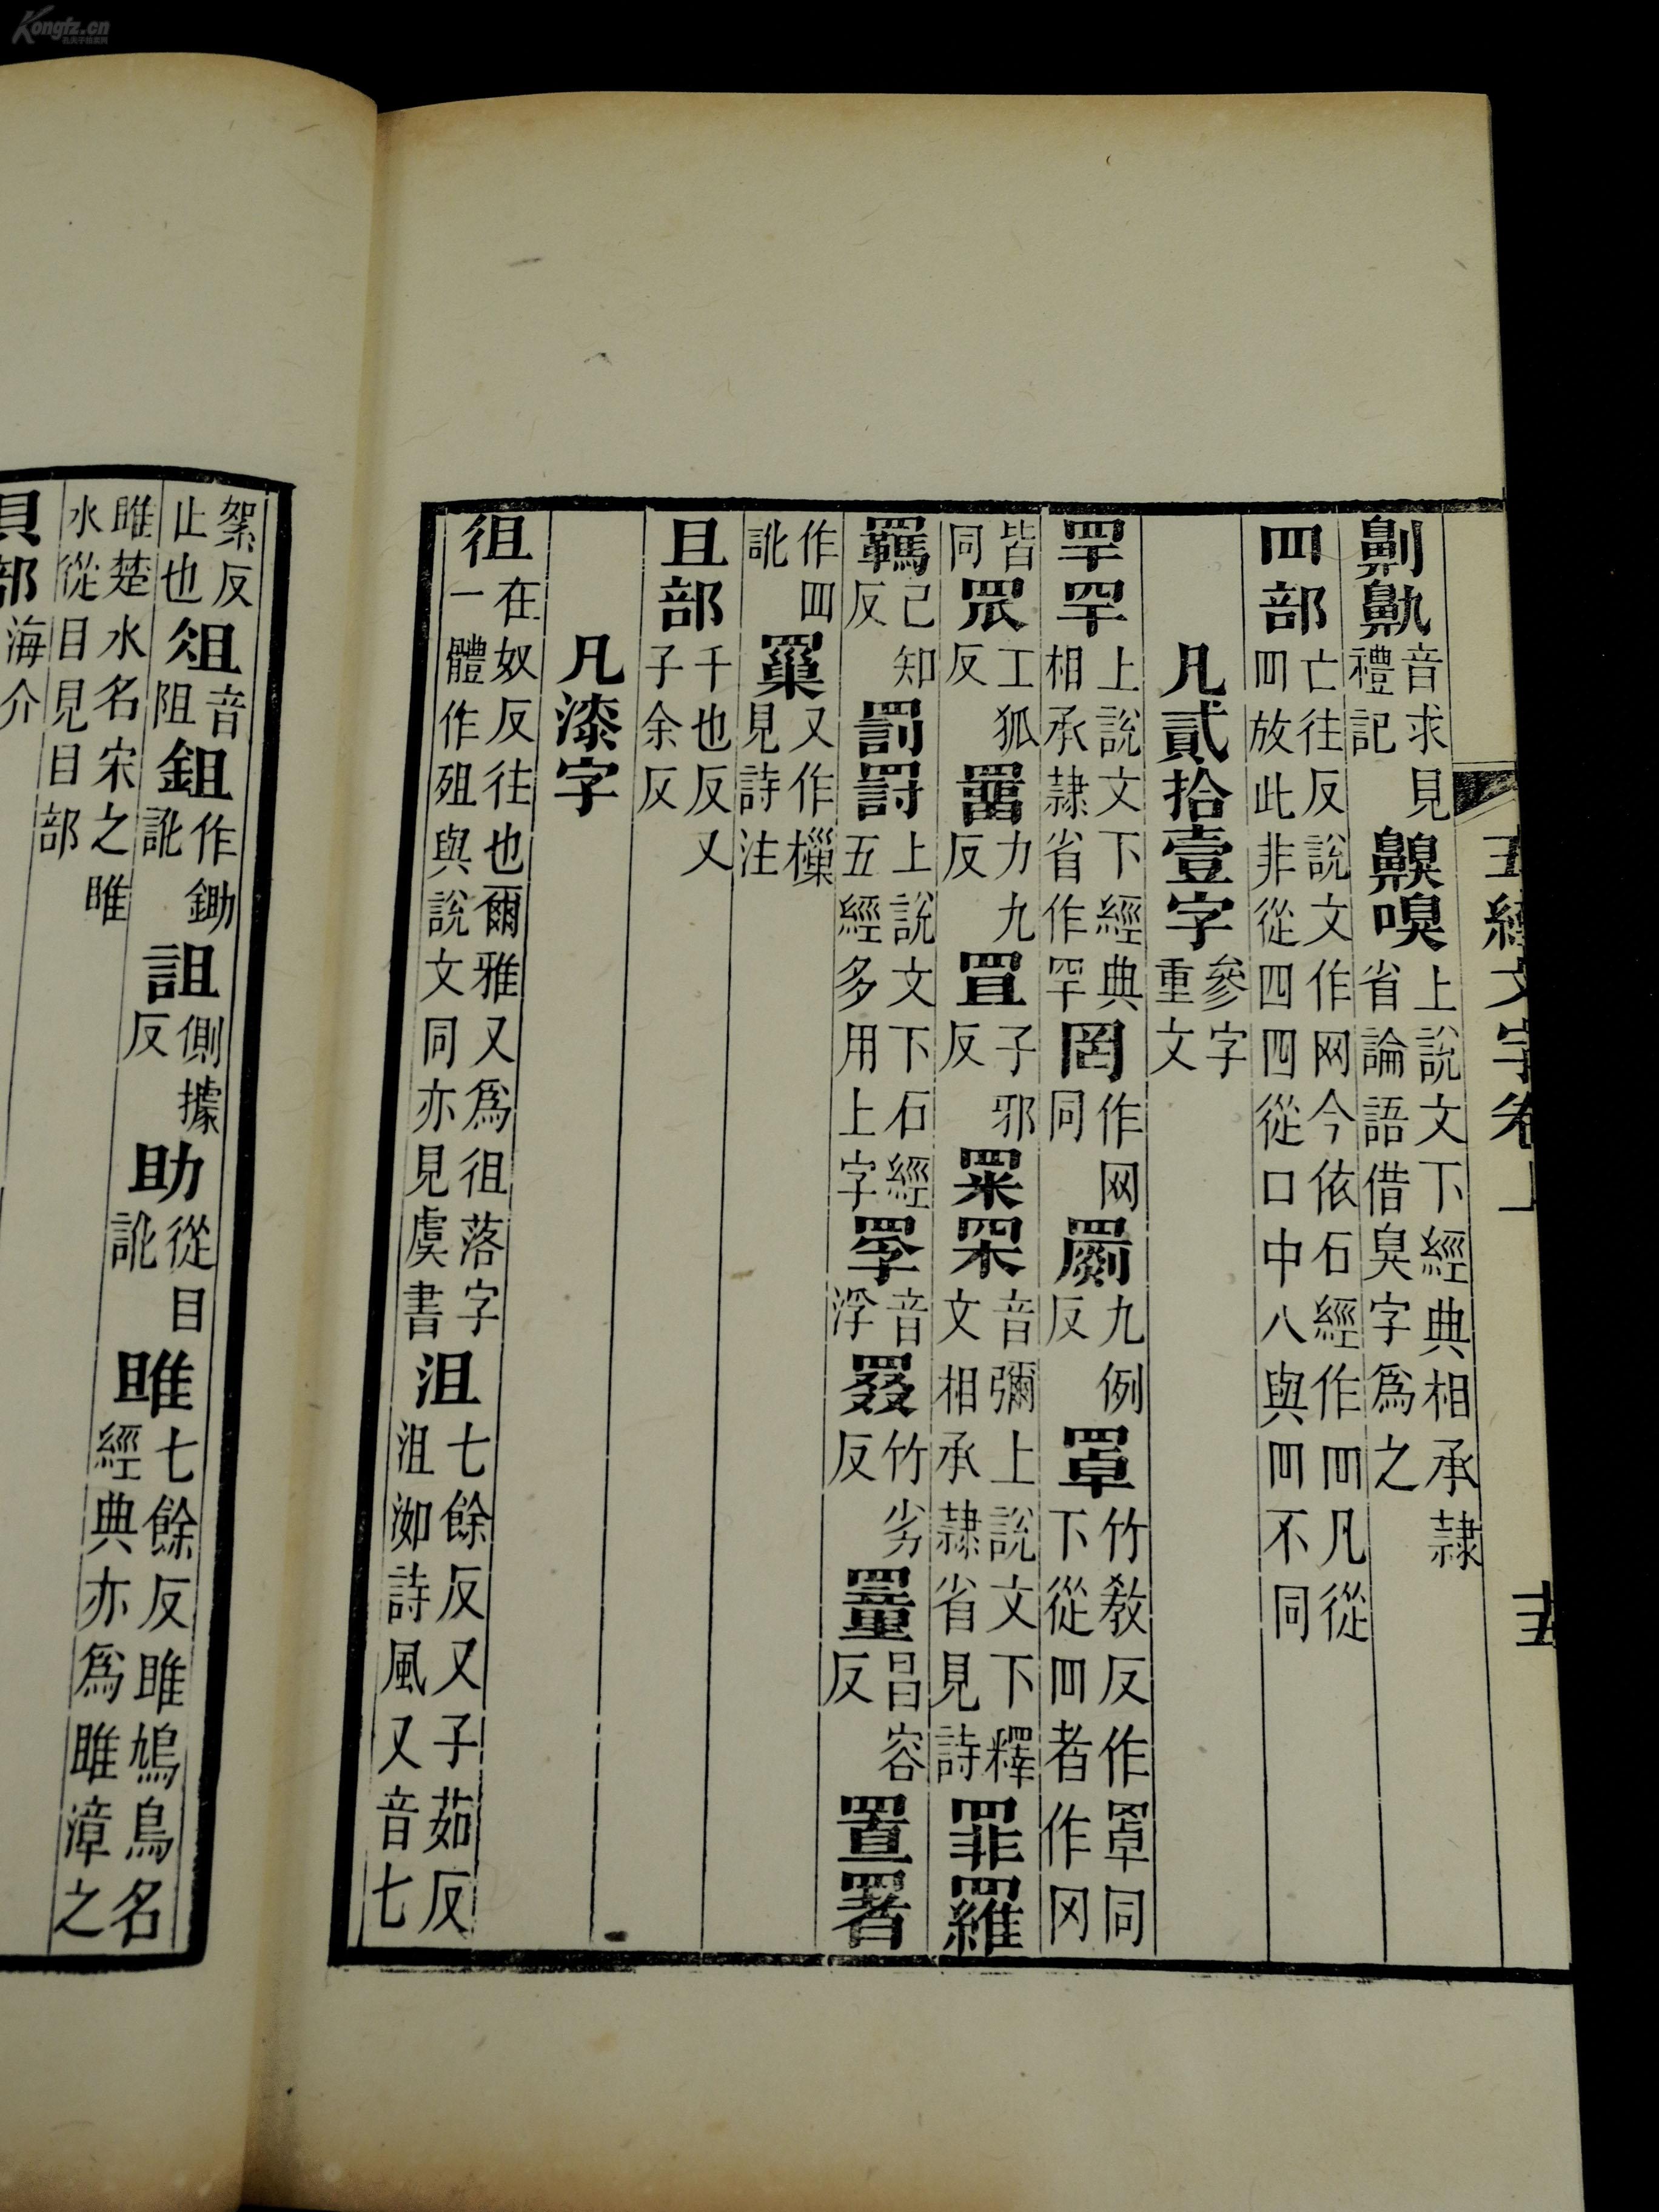 Kongfz.cn
孔夫子旧书网
五經文字卷上 十五
劓鼽音求見禮記齅嗅上說文下經典相承隸省論語借臭字爲之
罒部亡往反說文作网今依石經作罒凡從罒放此非從四四從口中八與罒不同
凡貳拾壹字參字重文
罕罕上說文下經典相承隸省作罕罔作网同罽九例反罩竹敎反作罩同下從罒者作冈
皆同罛工狐反罶力九反罝子邪反冞罙音彌上說文下釋文相承隸省見詩罪羅
羈己知反罰罸上說文下石經五經多用上字罦音浮罬竹劣反罿昌容反置署
作罒訛罺又作樔見詩注
且部千也反又子余反
凡漆字
徂在奴反往也爾雅又爲徂落字一體作殂與說文同亦見虞書沮七餘反又子茹反沮洳詩風又音七
絮反止也俎音阻鉏作鋤訛詛側據反助從目訛雎七餘反雎鳩鳥名經典亦爲雎漳之
雎楚水名宋之睢水從目見目部
貝部海介